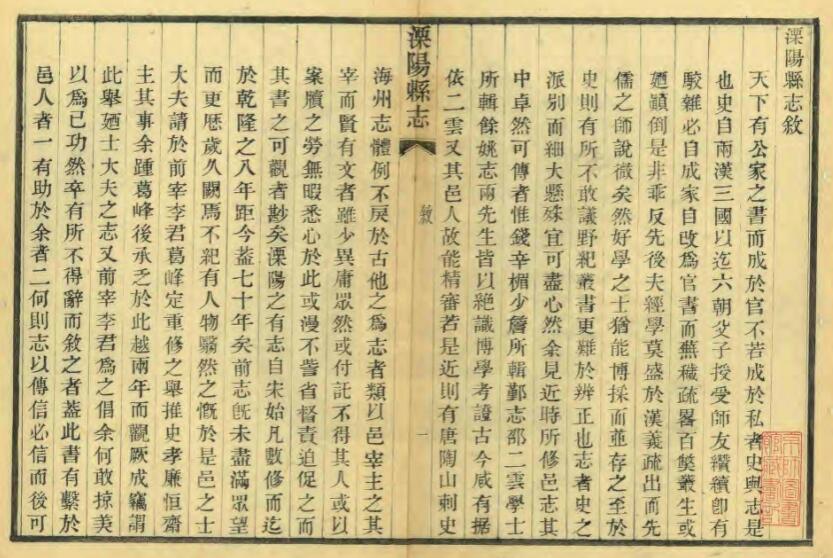 溧陽縣志敘
天下有公家之書而成於官不若成於私者史與志是
也史自兩漢三國以迄六朝父子授受師友纘續卽有
駮雜必自成家自改爲官書而蕪穢疏畧百獘叢生或
廼顚倒是非乖反先後夫經學莫盛於漢義疏出而先
儒之師說微矣然好學之士猶能博採而並存之至於
史則有所不敢議野紀叢書更難於辨正也志者史之
派別而細大懸殊宜可盡心然余見近時所修邑志其
中卓然可傳者惟錢辛楣少詹所輯鄞志邵二雲學士
所輯餘姚志兩先生皆以絶識博學考證古今咸有據
依二雲又其邑人故能精審若是近則有唐陶山刺史
溧陽縣志
敘
一
海州志體例不戾於古他之爲志者類以邑宰主之其
宰而賢有文者雖少異庸眾然或付託不得其人或以
案牘之勞無暇悉心於此或漫不訾省督責迫促之而
其書之可觀者尠矣溧陽之有志自宋始凡數修而迄
於乾隆之八年距今葢七十年矣前志旣未盡滿眾望
而更歷歲久闕焉不紀有人物翳然之慨於是邑之士
大夫請於前宰李君葛峰定重修之舉推史孝廉恒齋
主其事余踵葛峰後承乏於此越兩年而觀厥成竊謂
此舉廼士大夫之志又前宰李君爲之倡余何敢掠美
以爲已功然卒有所不得辭而敘之者葢此書有繫於
邑人者一有助於余者二何則志以傳信必信而後可